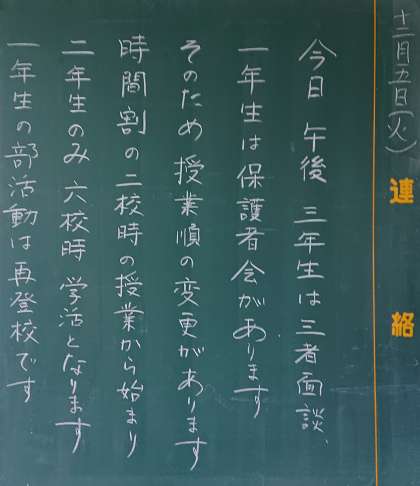 十二月五日(火)
連絡
今日 午後 三年生は三者面談、
一年生は保護者会があります
そのため 授業順の変更があります
時間割の二校時の授業から始まり
二年生のみ 六校時 学活となります
一年生の部活動は再登校です